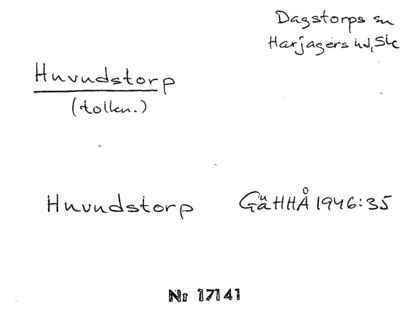 Dagstorps sn
Harjagers hd, Sk
Huvudstorp
(tolkn.)
Huvudstorp GäHHÅ 1946:35
Nr 17141